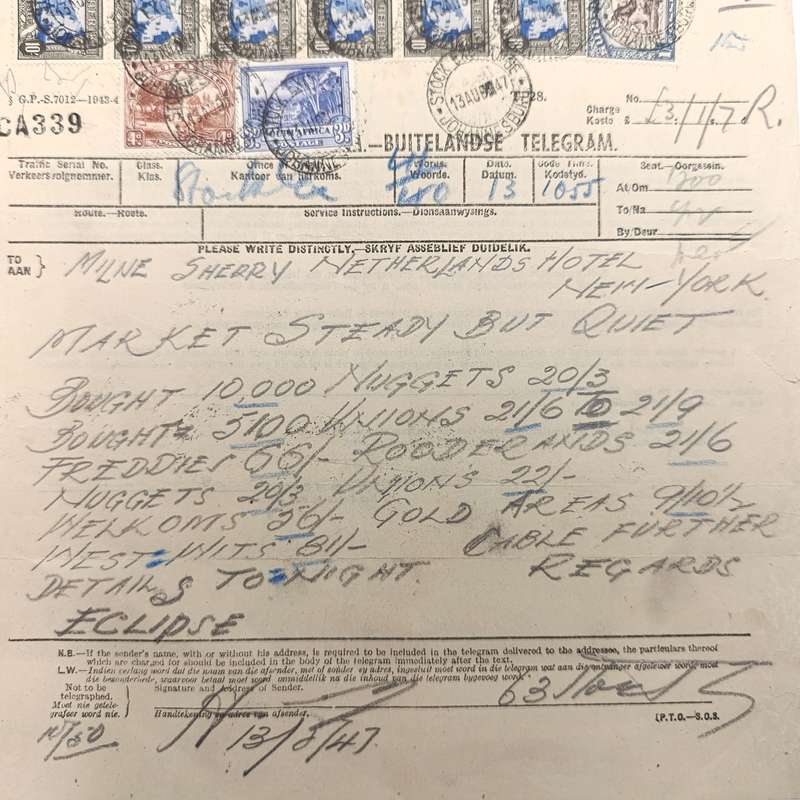 STOCK EXCHANGE
13 AUG 47
§ G.P.-S.7012—1943-4
T.P28.
Charge
Kosto
No.
£3/1/7 R.
SOUTH AFRICA
POSTAGE
CA339
—BUITELANDSE TELEGRAM.
Traffic Serial No.
Verkeersvolgnommer.
Class.
Klas.
Office
Kantoor van herkoms.
Words.
Woorde.
Date.
Datum. 13
Code Time.
Kodetyd. 1055
Sent.—Oorgesein.
At/Om
To/Na
By/Deur
Route.—Roete.
Service Instructions.—Diensaanwysings.
PLEASE WRITE DISTINCTLY.—SKRYF ASSEBLIEF DUIDELIK.
TO
AAN } MILNE SHERRY NETHERLANDS HOTEL
NEW-YORK.
MARKET STEADY BUT QUIET
BOUGHT 10,000 NUGGETS 20/3
BOUGHT 5100 UNIONS 21/6 TO 21/9
FREDDIES 66/- ROODERANDS 21/6
NUGGETS 20/3 UNIONS 22/-
WELKOMS 26/- GOLD AREAS 9/10½
WEST WITS 81/- CABLE FURTHER
DETAILS TO-NIGHT. REGARDS
ECLIPSE
N.B.—If the sender's name, with or without his address, is required to be included in the telegram delivered to the addressee, the particulars thereof
which are charged for should be included in the body of the telegram immediately after the text.
L.W.—Indien verlang word dat die naam van die afsender, met of sonder sy adres, ingesluit moet word in die telegram wat aan die ontvanger afgelewer word moet
die besonderhede, waarvoor betaal moet word onmiddellik na die inhoud van die telegram bygevoeg word.
Not to be
telegraphed.
Moet nie getele-
grafeer word nie.
Signature and Address of Sender.
Handtekening en adres van afsender.
63
13/8/47.
(P.T.O.—S.O.S.